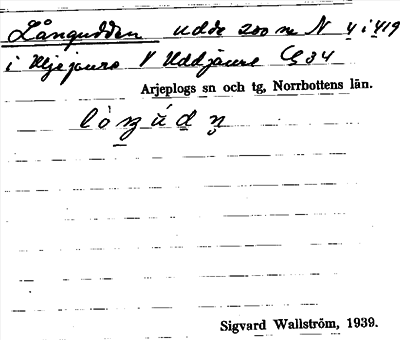 Långudden udde 200 m N 4 i 419
i Uljejaure V Uddjaure G 34
Arjeplogs sn och tg, Norrbottens län.
Sigvard Wallström, 1939.